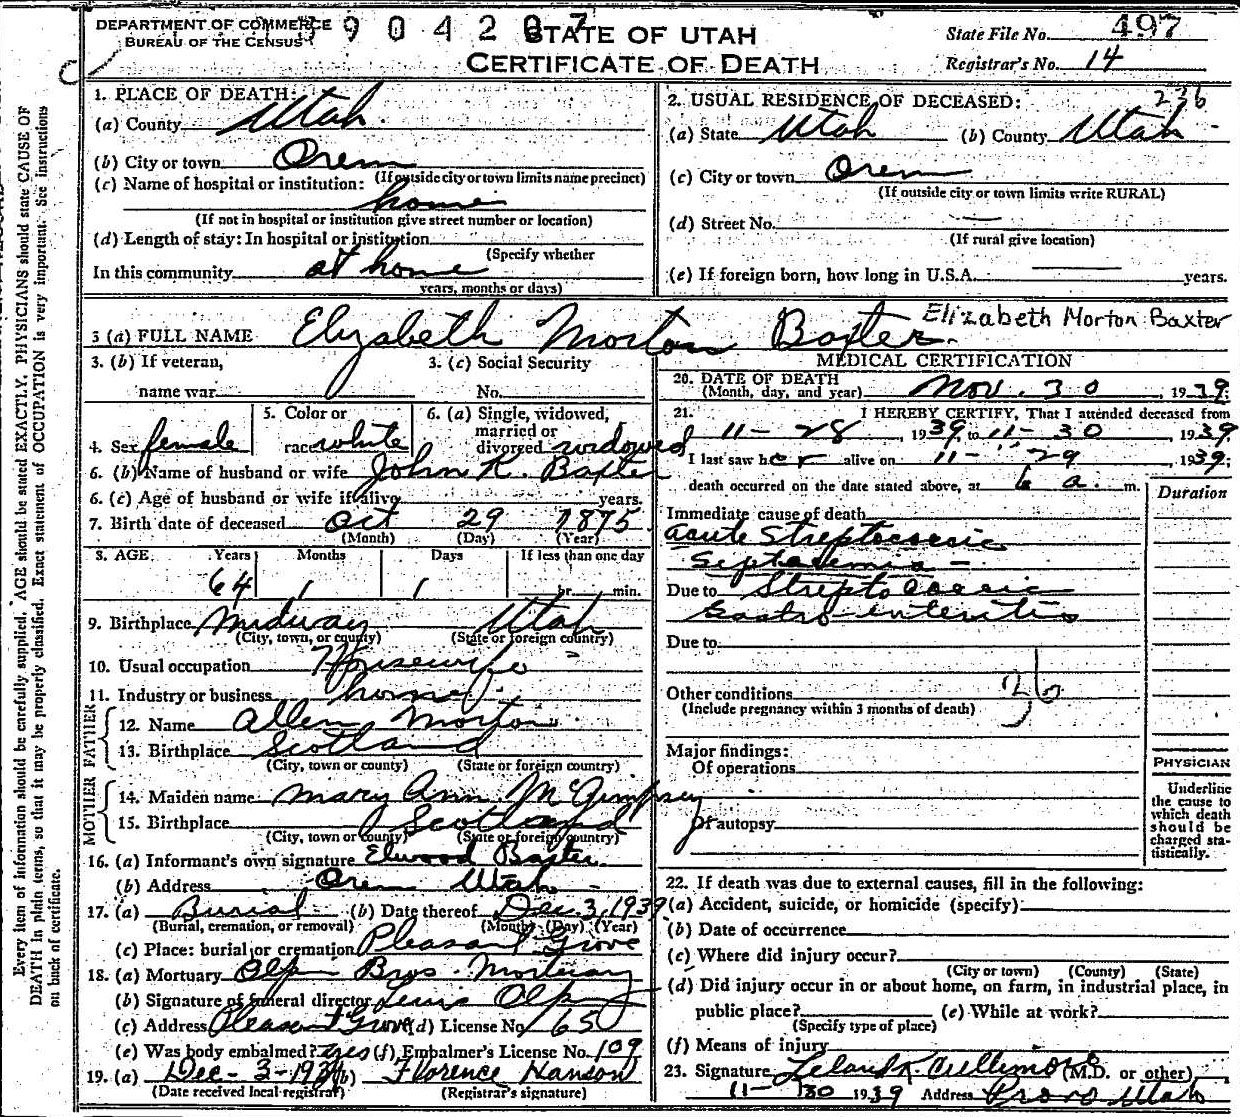 DEPARTMENT OF COMMERCE
BUREAU OF THE CENSUS
3904207
STATE OF UTAH
CERTIFICATE OF DEATH
State File No. 497
Registrar's No. 14
1. PLACE OF DEATH:
(a) County Utah
(b) City or town Orem
(If outside city or town limits name precinct)
(c) Name of hospital or institution:
home
(If not in hospital or institution give street number or location)
(d) Length of stay: In hospital or institution
(Specify whether
In this community at home
years, months or days)
2. USUAL RESIDENCE OF DECEASED: 236
(a) State Utah (b) County Utah
(c) City or town Orem
(If outside city or town limits write RURAL)
(d) Street No. —
(If rural give location)
(e) If foreign born, how long in U.S.A. years.
3 (a) FULL NAME Elizabeth Morton Baxter. Elizabeth Morton Baxter
3. (b) If veteran, 3. (c) Social Security
name war No.
4. Sex female
5. Color or
race white
6. (a) Single, widowed,
married or
divorced widowed
6. (b) Name of husband or wife John K. Baxter
6. (c) Age of husband or wife if alive years.
7. Birth date of deceased Oct 29 1875
(Month) (Day) (Year)
8. AGE Years Months Days If less than one day
64 1 1 hr. min.
9. Birthplace Midway Utah
(City, town, or county) (State or foreign country)
10. Usual occupation Housewife
11. Industry or business home
FATHER
12. Name Allen Morton
13. Birthplace Scotland
(City, town or county) (State or foreign country)
MOTHER
14. Maiden name Mary Ann McGimpsey
15. Birthplace Scotland
(City, town or county) (State or foreign country)
16. (a) Informant's own signature Elwood Baxter.
(b) Address Orem Utah
17. (a) Burial (b) Date thereof Dec. 3, 1939
(Burial, cremation, or removal) (Month) (Day) (Year)
(c) Place: burial or cremation Pleasant Grove
18. (a) Mortuary Olpin Bros. Mortuary
(b) Signature of funeral director Lewis Olpin
(c) Address Pleasant Grove (d) License No. 65
(e) Was body embalmed? yes (f) Embalmer's License No. 109
19. (a) Dec - 3 - 1939 (b) Florence Hanson
(Date received local registrar) (Registrar's signature)
MEDICAL CERTIFICATION
20. DATE OF DEATH
(Month, day, and year) Nov. 30, 1939.
21. I HEREBY CERTIFY, That I attended deceased from
11 - 28, 1939 to 11 - 30, 1939
I last saw her alive on 11 - 29, 1939;
death occurred on the date stated above, at 6 a. m.
Duration
Immediate cause of death
acute Streptococcic
Septicemia -
Due to Streptococcic
Gastro-enteritis
Due to
Other conditions
(Include pregnancy within 3 months of death)
Major findings:
Of operations
Of autopsy
PHYSICIAN
Underline
the cause to
which death
should be
charged sta-
tistically.
22. If death was due to external causes, fill in the following:
(a) Accident, suicide, or homicide (specify):
(b) Date of occurrence
(c) Where did injury occur?
(City or town) (County) (State)
(d) Did injury occur in or about home, on farm, in industrial place, in
public place? (e) While at work?
(Specify type of place)
(f) Means of injury
23. Signature Leland K. Cullimore (M.D. or other)
11 - 30 1939 Address Provo Utah
Every item of information should be carefully supplied. AGE should be stated EXACTLY. PHYSICIANS should state CAUSE OF
DEATH in plain terms, so that it may be properly classified. Exact statement of OCCUPATION is very important. See instructions
on back of certificate.